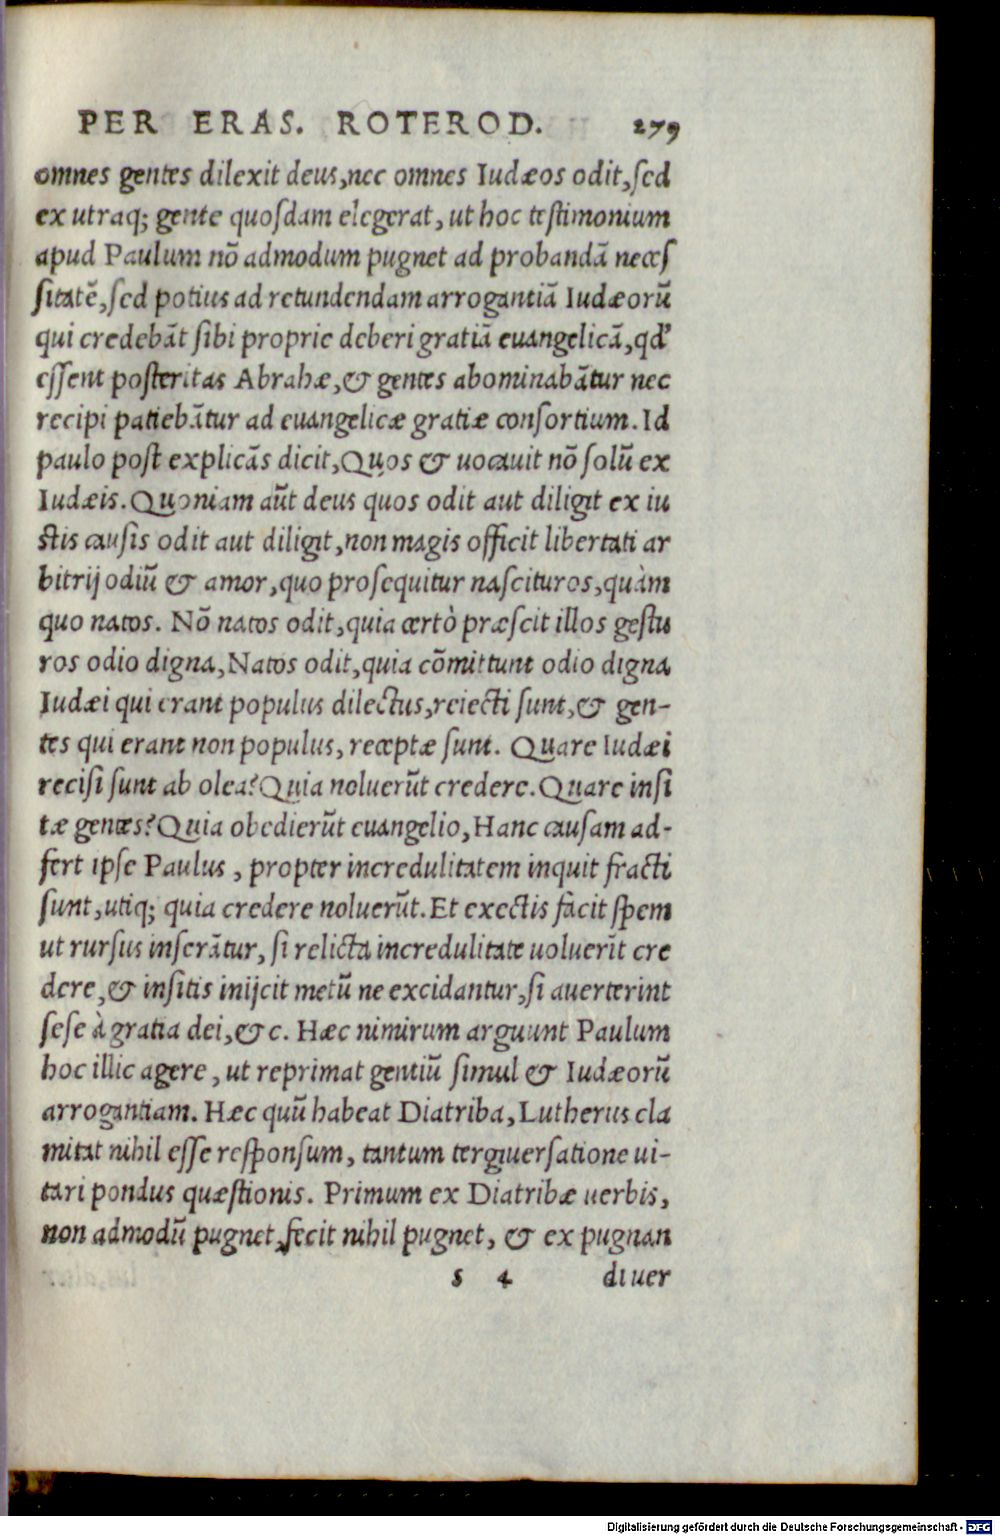 PER ERAS. ROTEROD. 279
omnes gentes dilexit deus, nec omnes Iudæos odit, sed
ex utraq; gente quosdam elegerat, ut hoc testimonium
apud Paulum nō admodum pugnet ad probandā neces
sitatē, sed potius ad retundendam arrogantiā Iudæorū
qui credebāt sibi proprie deberi gratiā euangelicā, qd'
essent posteritas Abrahæ, & gentes abominabātur nec
recipi patiebātur ad euangelicæ gratiæ consortium. Id
paulo post explicās dicit, Quos & uocauit nō solū ex
Iudæis. Quoniam aūt deus quos odit aut diligit ex iu
stis causis odit aut diligit, non magis officit libertati ar
bitrij odiū & amor, quo prosequitur nascituros, quàm
quo natos. Nō natos odit, quia certò præscit illos gestu
ros odio digna, Natos odit, quia cōmittunt odio digna
Iudæi qui erant populus dilectus, reiecti sunt, & gen-
tes qui erant non populus, receptæ sunt. Quare Iudæi
recisi sunt ab olea? Quia noluerūt credere. Quare insi
tæ gentes? Quia obedierūt euangelio, Hanc causam ad-
fert ipse Paulus, propter incredulitatem inquit fracti
sunt, utiq; quia credere noluerūt. Et exectis facit spem
ut rursus inserātur, si relicta incredulitate uoluerīt cre
dere, & insitis inijcit metū ne excidantur, si auerterint
sese à gratia dei, &c. Hæc nimirum arguunt Paulum
hoc illic agere, ut reprimat gentiū simul & Iudæorū
arrogantiam. Hæc quū habeat Diatriba, Lutherus cla
mitat nihil esse responsum, tantum tergiuersatione ui-
tari pondus quæstionis. Primum ex Diatribæ uerbis,
non admodū pugnet, fecit nihil pugnet, & ex pugnan
s 4 di uer
Digitalisierung gefördert durch die Deutsche Forschungsgemeinschaft - DFG